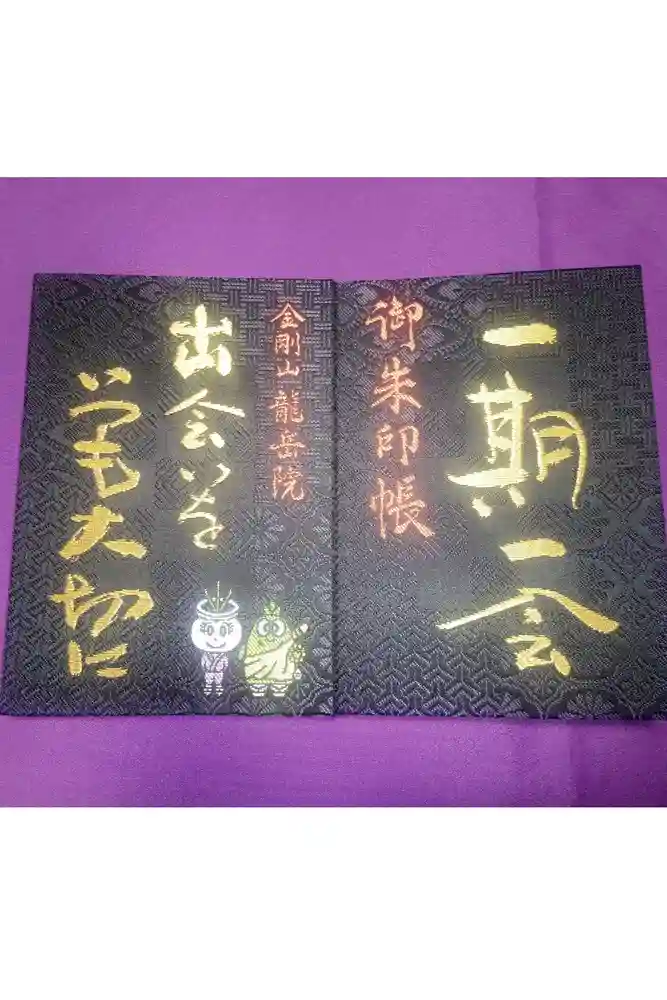 一期一会
御朱印帳
金剛山 龍岳院
出会いを
いつも大切に